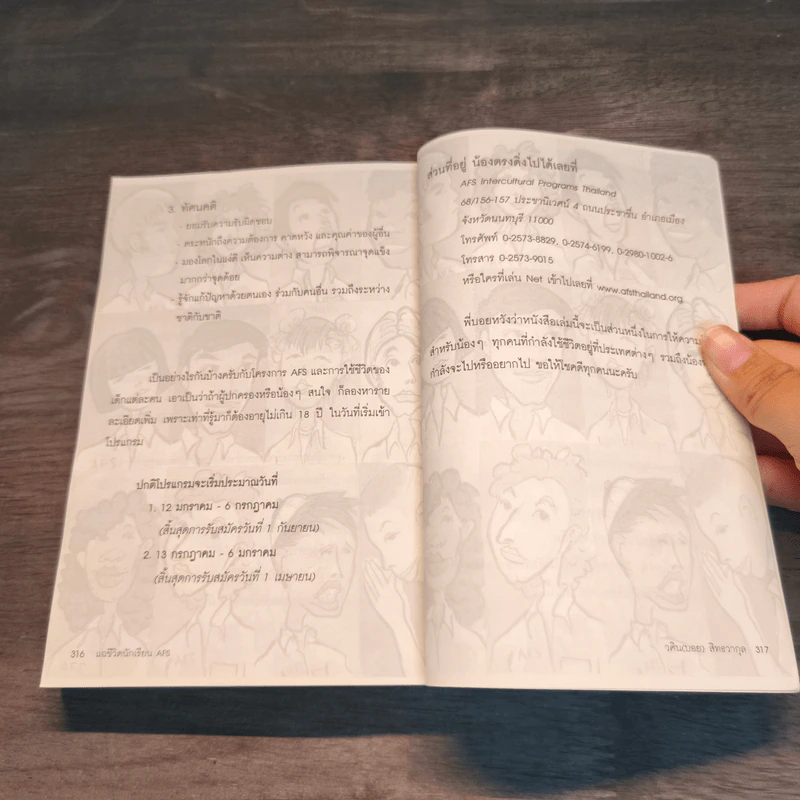 3. ทัศนคติ
- ยอมรับความรับผิดชอบ
- ตระหนักถึงความต้องการ คาดหวัง และคุณค่าของผู้อื่น
- มองโลกในแง่ดี เห็นความต่าง สามารถพิจารณาจุดแข็ง
มากกว่าจุดด้อย
- รู้จักแก้ปัญหาด้วยตนเอง ร่วมกับคนอื่น รวมถึงระหว่าง
ชาติกับชาติ
เป็นอย่างไรกันบ้างครับกับโครงการ AFS และการใช้ชีวิตของ
เด็กแต่ละคน เอาเป็นว่าถ้าผู้ปกครองหรือน้องๆ สนใจ ก็ลองหาราย
ละเอียดเพิ่ม เพราะเท่าที่รู้มาก็ต้องอายุไม่เกิน 18 ปี ในวันที่เริ่มเข้า
โปรแกรม
ปกติโปรแกรมจะเริ่มประมาณวันที่
1. 12 มกราคม - 6 กรกฎาคม
(สิ้นสุดการรับสมัครวันที่ 1 กันยายน)
2. 13 กรกฎาคม - 6 มกราคม
(สิ้นสุดการรับสมัครวันที่ 1 เมษายน)
316 แฉชีวิตนักเรียน AFS
ส่วนที่อยู่ น้องตรงดิ่งไปได้เลยที่
AFS Intercultural Programs Thailand
68/156-157 ประชานิเวศน์ 4 ถนนประชาชื่น อำเภอเมือง
จังหวัดนนทบุรี 11000
โทรศัพท์ 0-2573-8829, 0-2574-6199, 0-2980-1002-6
โทรสาร 0-2573-9015
หรือใครที่เล่น Net เข้าไปเลยที่ www.afsthailand.org
พี่บอยหวังว่าหนังสือเล่มนี้จะเป็นส่วนหนึ่งในการให้ความ
สำหรับน้องๆ ทุกคนที่กำลังใช้ชีวิตอยู่ที่ประเทศต่างๆ รวมถึงน้อง
กำลังจะไปหรืออยากไป ขอให้โชคดีทุกคนนะครับ
วศิน(บอย) สิทธวากุล 317